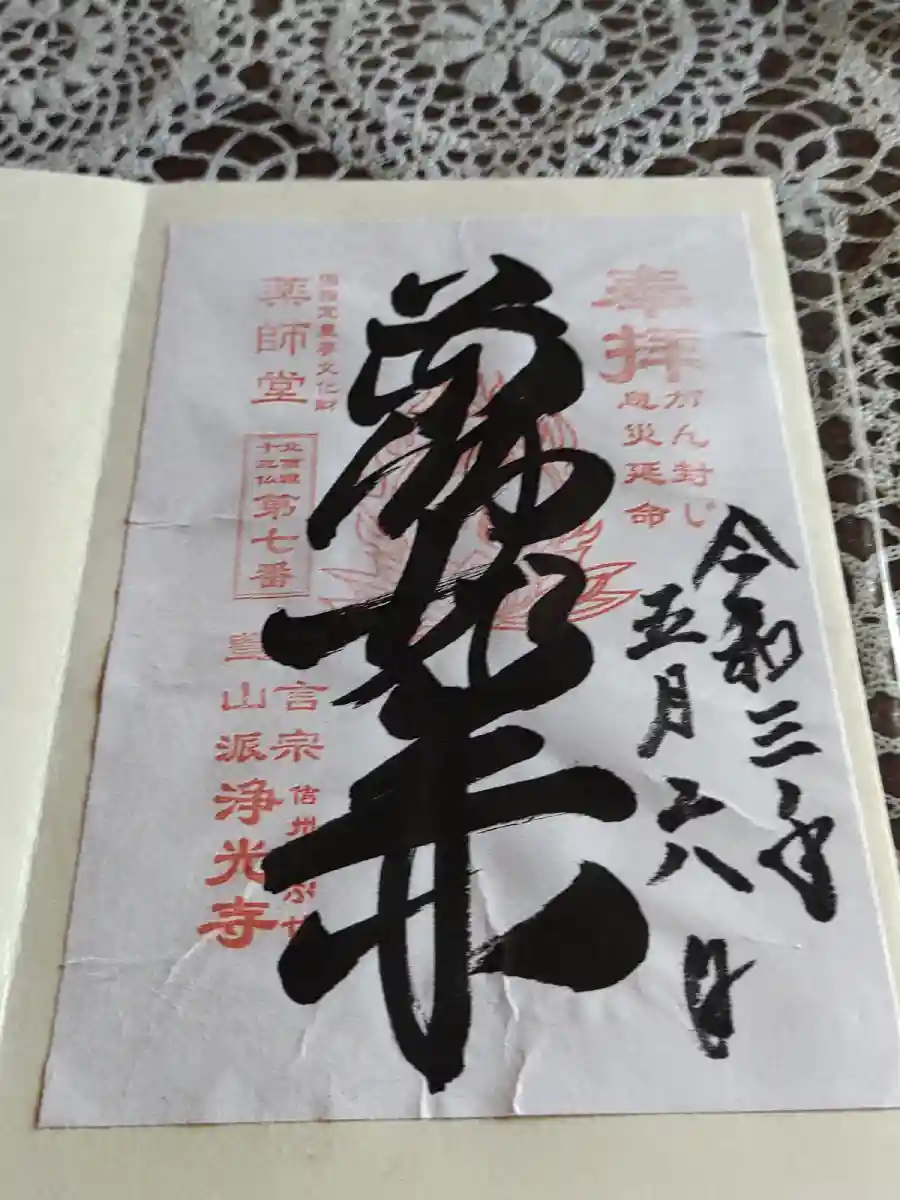 奉拝
がん封じ
息災延命
令和三年
五月二八日
薬師如来
国指定重要文化財
薬師堂
北信濃
十三仏
第七番
言宗
豊山派
信州
ぶせ
浄光寺